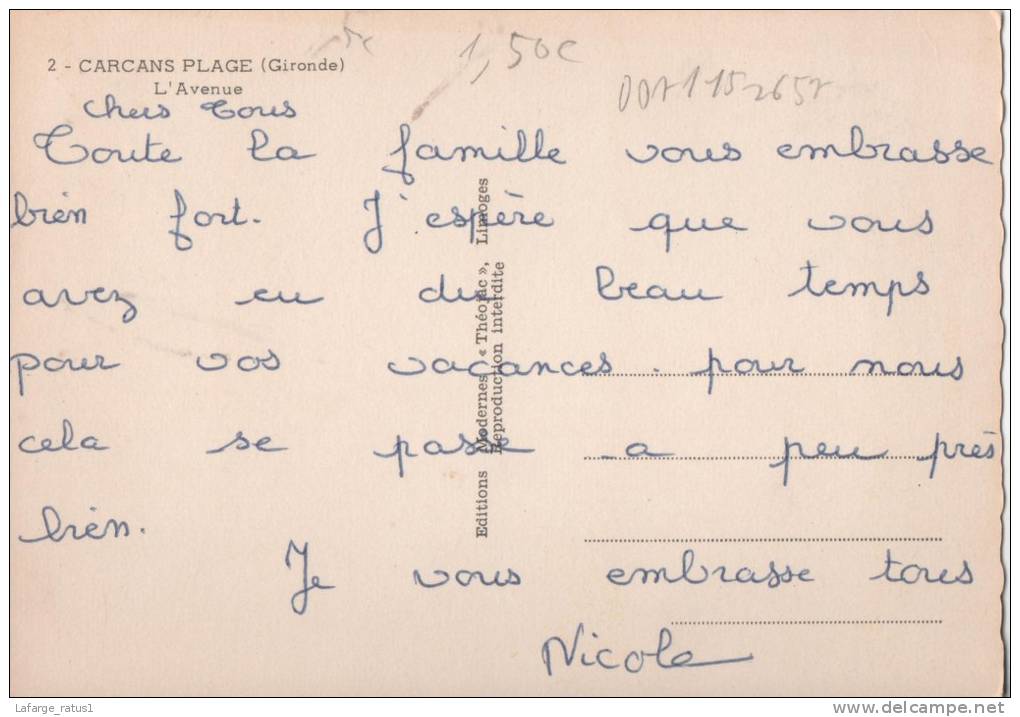 2 - CARCANS PLAGE (Gironde)
L'Avenue
1,50€
Chers Tous
Toute la famille vous embrasse
bien fort. J'espère que vous
avez eu du beau temps
pour vos vacances. pour nous
cela se passe a peu près
bien.
Je vous embrasse tous
Nicole
Editions Modernes « Théojac », Limoges
Reproduction interdite
Lafarge_ratus1
www.delcampe.net